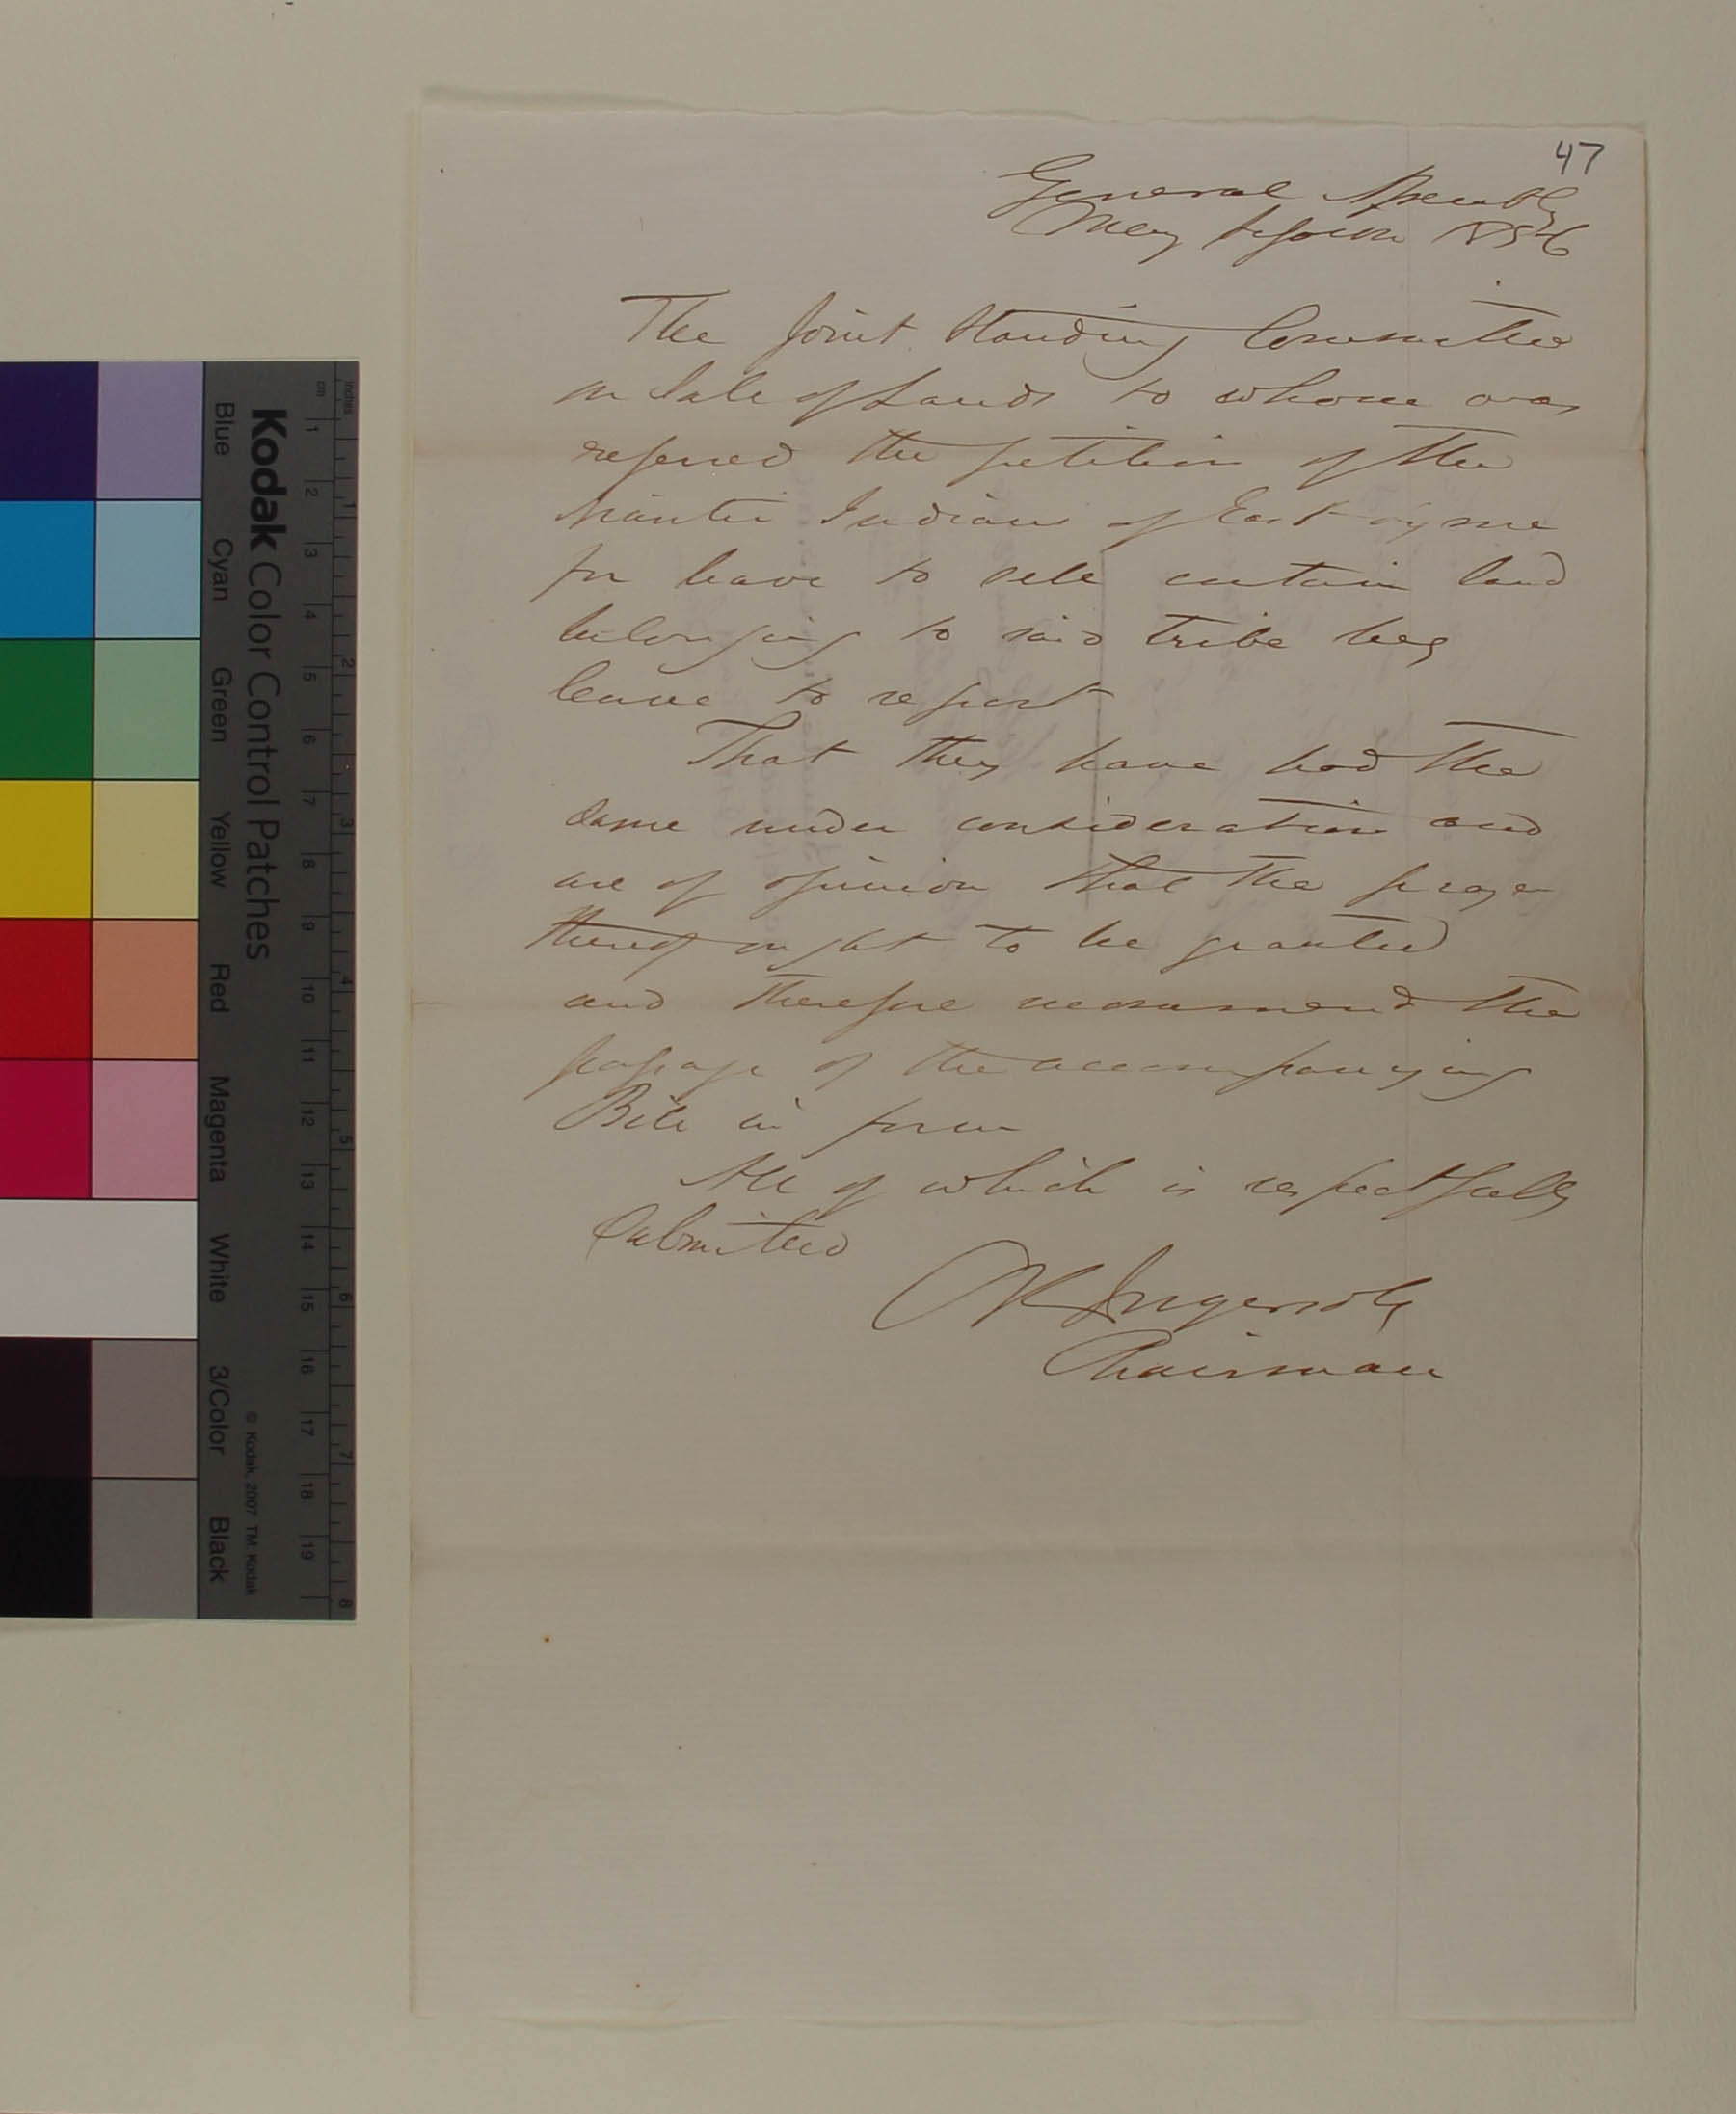 47
General Assembly
May Session 1856
The Joint Standing Committee
on Sale of Lands to whom was
refered the petition of the
Niantic Indians of East Lyme
for leave to sell certain land
belonging to said tribe beg
leave to report
That they have had the
same under consideration and
are of opinion that the prayer
thereof ought to be granted
and therefore recommend the
passage of the accompanying
Bill in form
All of which is respectfully
Submitted
Ingersoll
Chairman
Kodak Color Control Patches
Blue Cyan Green Yellow Red Magenta White 3/Color Black
© Kodak, 2007 TM: Kodak
inches 1 2 3 4 5 6 7 8
cm 1 2 3 4 5 6 7 8 9 10 11 12 13 14 15 16 17 18 19